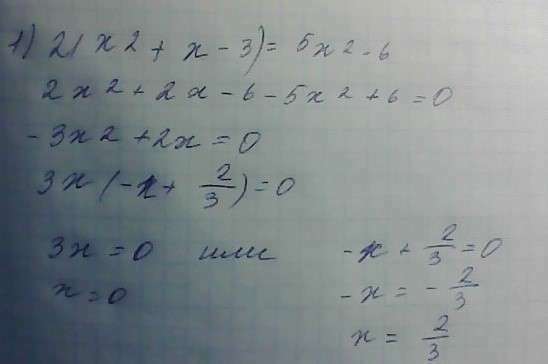 1) 2(x2 + x - 3) = 5x2 - 6
2x2 + 2x - 6 - 5x2 + 6 = 0
-3x2 + 2x = 0
3x(-x + 2/3) = 0
3x = 0 или -x + 2/3 = 0
x = 0 -x = -2/3
x = 2/3